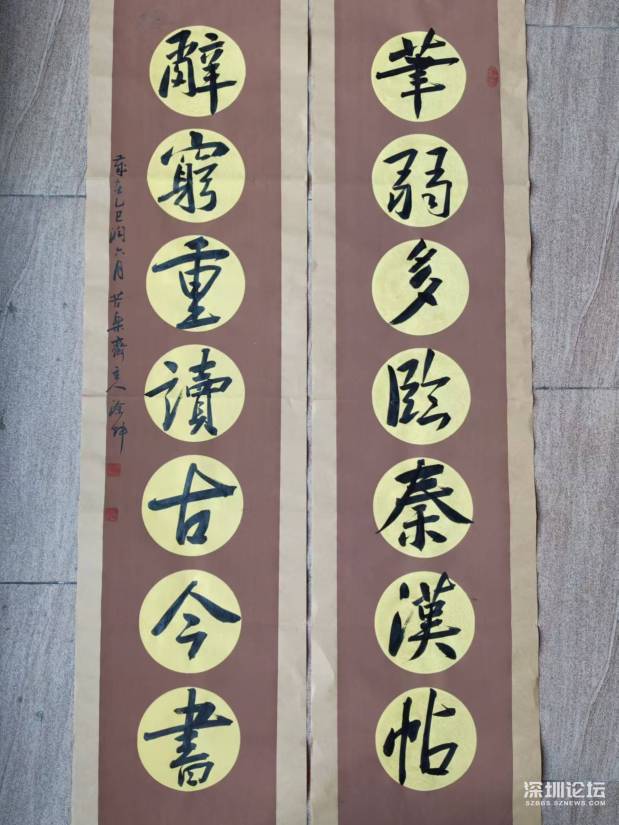 筆弱多臨秦漢帖
辭窮重讀古今書
歲在乙巳闰六月 苦樂齋主人
深圳论坛
SZBBS.SZNEWS.COM